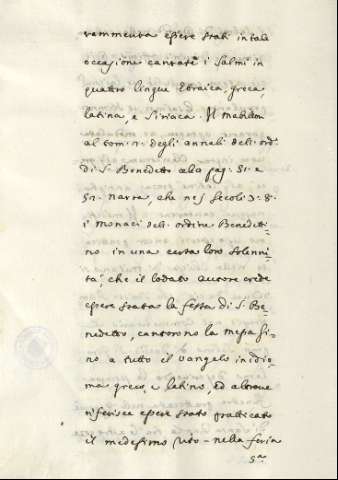 rammenta essere stati in tale
occasione cantati i Salmi in
quattro lingue Ebraica, greca,
latina, e Siriaca. Il Mabillon
al tom. degli annali dell' ord.
di S. Benedetto alla pag. 51. e
52. narra, che nel secolo
i monaci dell' ordine Benedetti=
no in una certa loro solenni=
tà, che il lodato autore crede
essere stata la festa di S. Be=
nedetto, cantorono la messa fi=
no a tutto il vangelo in idio=
ma greco, e latino, ed altrove
riferisce essere stato pratticato
il medesimo rito nella feria
5.ta